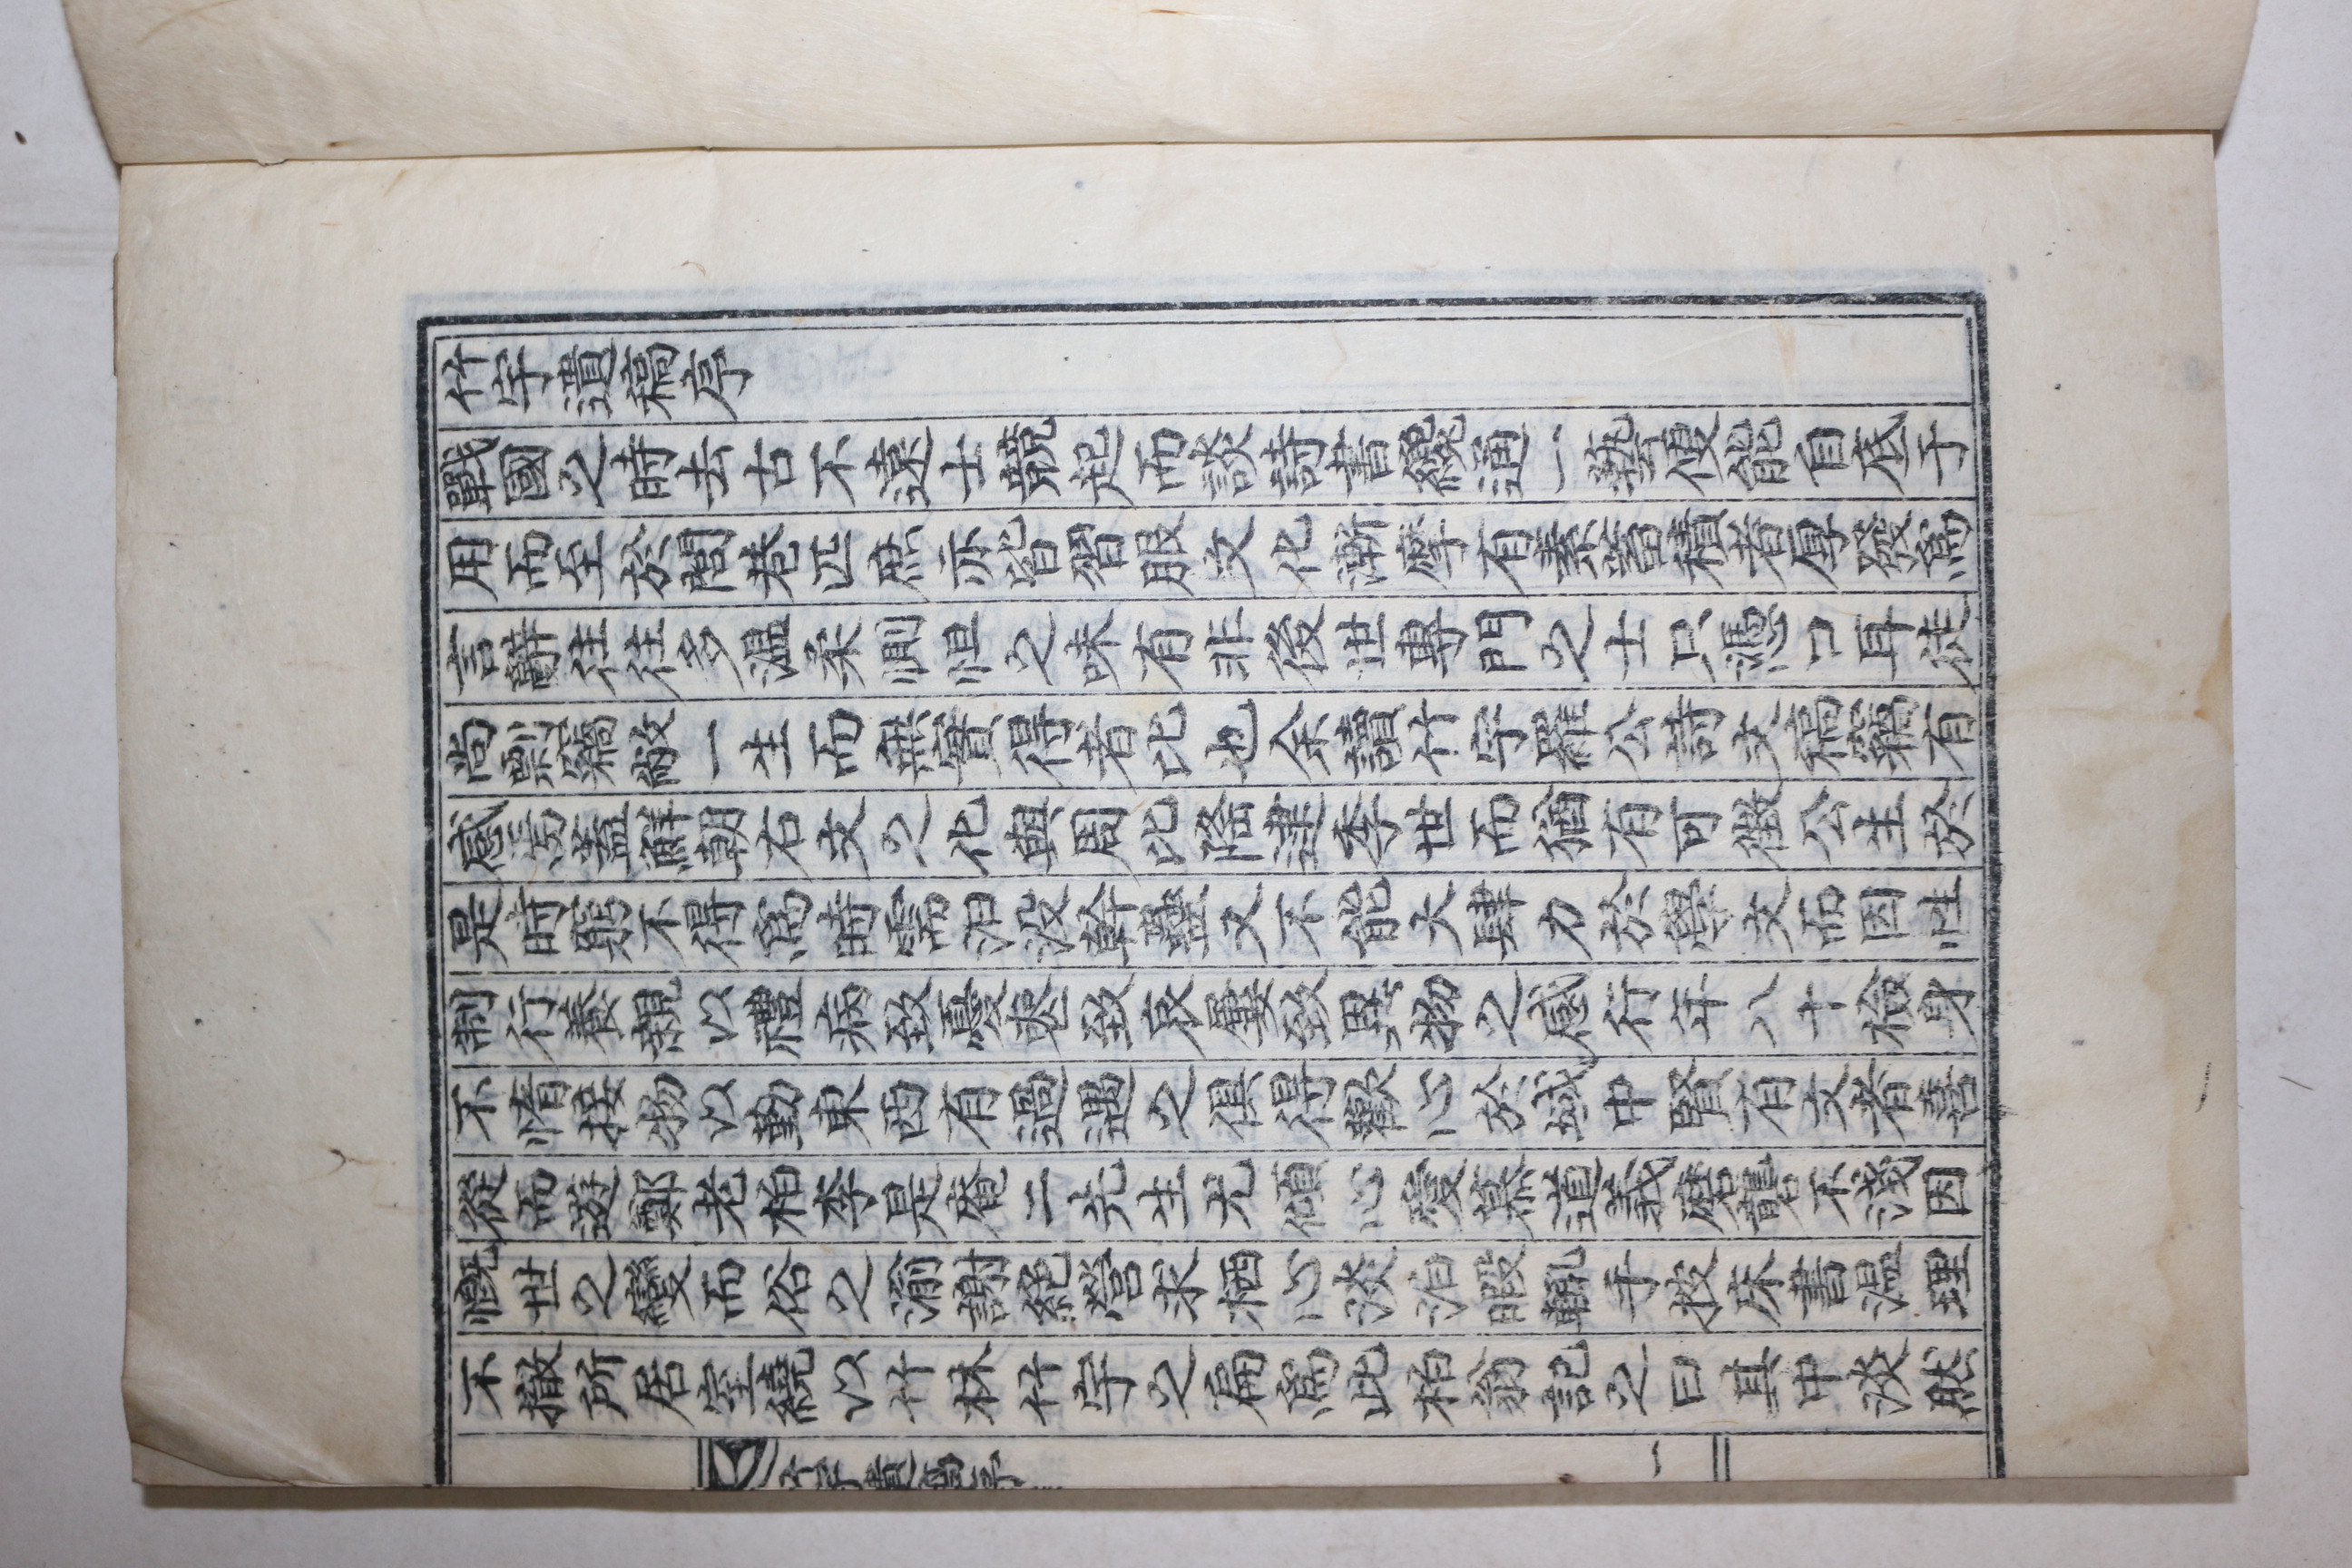 竹宇遺稿序
戰國之時去古不遠士競起而談詩書纔通一藝便能自底于
用而至於閭巷匹庶亦皆習服文化漸摩有素蓄積者厚發爲
言辭往往多温柔惻怛之味有非後世專門之士只憑口耳徒
尚剽竊敝一生而無實得者比也余讀竹宇羅公詩文稿竊有
感焉蓋鮮朝右文之化與周比隆逮季世而猶有可徵公生於
是時窮不得爲時需汨没幹蠱又不能大肆力於學文而因性
制行養親以禮病致憂喪致哀屢致異物之感行年八十檢身
不惰接物以勤東西有過遇之俱得歡心於域中賢有文者喜
從而遊鄭老柏李是庵二先生尤傾心愛慕道義磨礱不淺因
慨世之變而俗之渝謝絶營求栖心淡泊暇輒手按床書温理
不撤所居室繞以竹林竹宇之扁爲此柏翁記之曰其中淡然
竹宇遺稿序
一